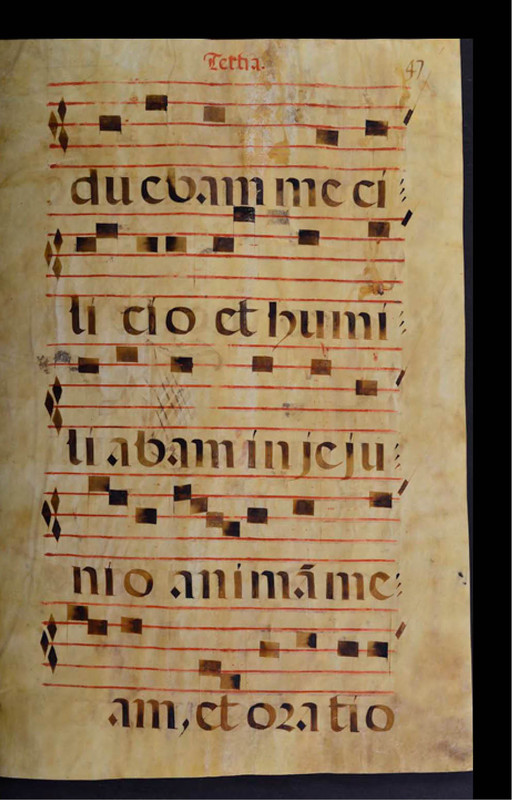 Tertia.
47
ducbam me ci
li cio et humi
li abam in jeju
nio animā me
am, et oratio